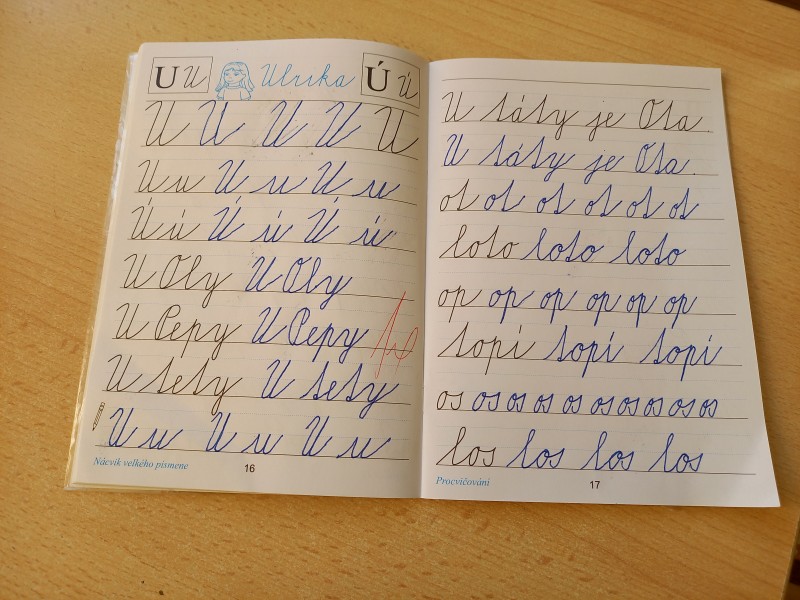 U U Ulrika Ú Ú
U U U U U
U u U u U u
Ú ú Ú ú Ú ú
U Oly U Oly
U Pepy U Pepy
U tety U tety
U u U u U u
Nácvik velkého písmene 16
U táty je Ota.
U táty je Ota.
ot ot ot ot ot ot
loto loto loto
op op op op op op
topí topí topí
os os os os os os os os os os
los los los los
Procvičování 17